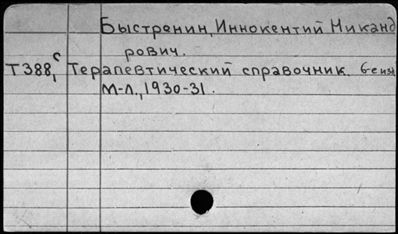 Быстренин, Иннокентий Никанд
рович.
Т388,с Терапевтический справочник. 6-е изд
М-Л., 1930-31.